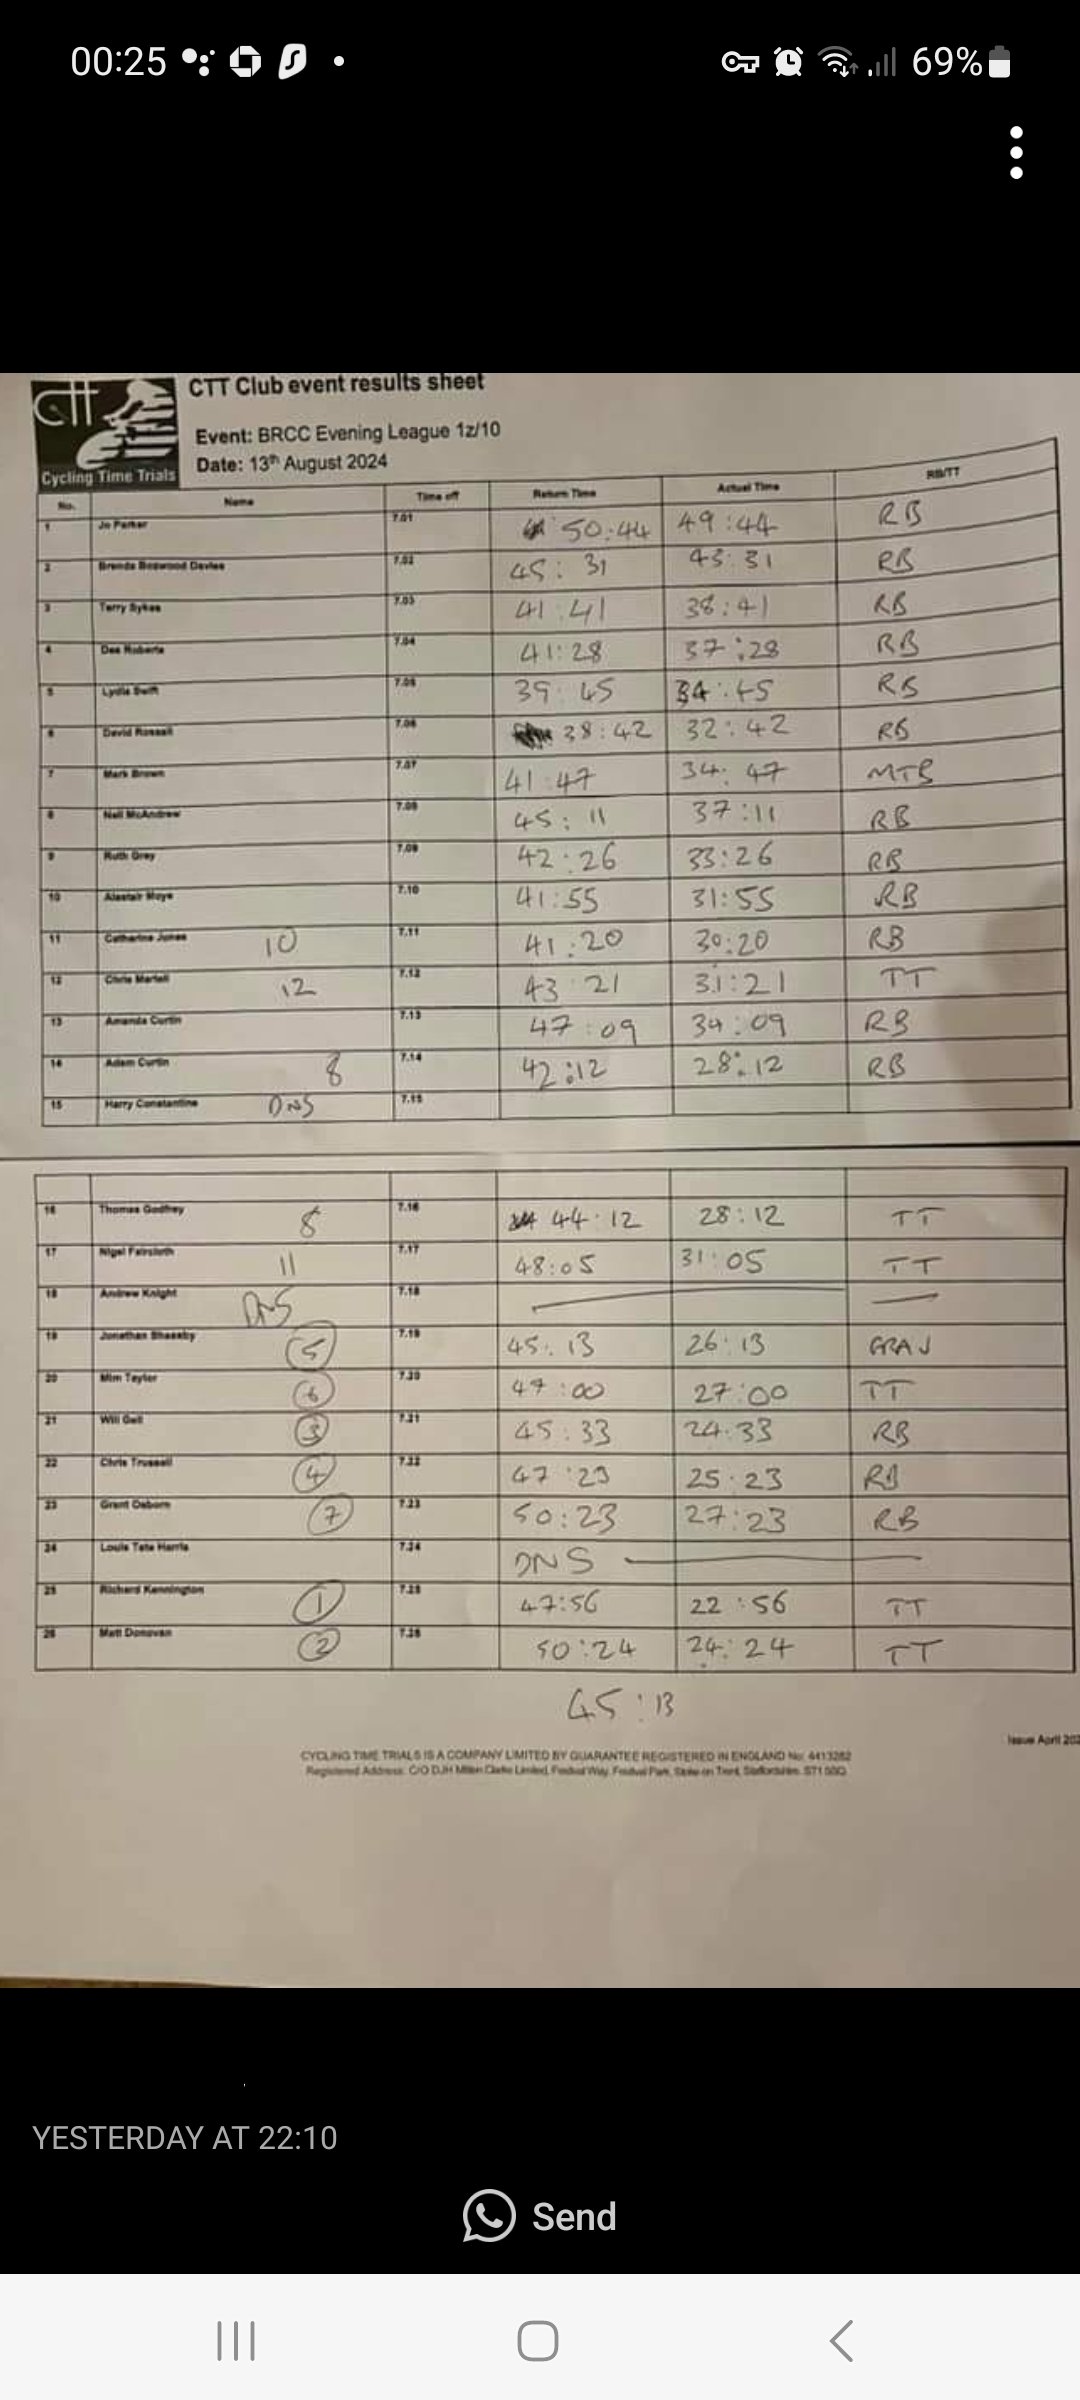 00:25 69%
CTT
Cycling Time Trials
CTT Club event results sheet
Event: BRCC Evening League 1z/10
Date: 13th August 2024
No. Name Time off Return Time Actual Time RB/TT
1 Jo Parker 7.01 50:44 49:44 RB
2 Brenda Boswood Davies 7.02 45:31 43:31 RB
3 Terry Sykes 7.03 41:41 38:41 RB
4 Dee Roberts 7.04 41:28 37:28 RB
5 Lydia Swift 7.05 39:45 34:45 RB
6 David Russell 7.06 38:42 32:42 RB
7 Mark Brown 7.07 41:47 34:47 MTB
8 Neil McAndrew 7.08 45:11 37:11 RB
9 Ruth Grey 7.09 42:26 33:26 RB
10 Alastair Moye 7.10 41:55 31:55 RB
11 Catharina Jones 10 7.11 41:20 30:20 RB
12 Chris Martell 12 7.12 43:21 31:21 TT
13 Amanda Curtin 7.13 47:09 34:09 RB
14 Adam Curtin 8 7.14 42:12 28:12 RB
15 Harry Constantine DNS 7.15
16 Thomas Godfrey 8 7.16 44:12 28:12 TT
17 Nigel Faircloth 11 7.17 48:05 31:05 TT
18 Andrew Knight DNS 7.18
19 Jonathan 5 7.19 45:13 26:13 GRAV
20 Mim Taylor 6 7.20 47:00 27:00 TT
21 Will Gell 3 7.21 45:33 24:33 RB
22 Chris Trussell 4 7.22 47:23 25:23 RB
23 Grant Osborn 7 7.23 50:23 27:23 RB
24 Louis Tate Harris 7.24 DNS
25 Richard Kennington 1 7.25 47:56 22:56 TT
26 Matt Donovan 2 7.26 50:24 24:24 TT
45:13
Issue April 202
CYCLING TIME TRIALS IS A COMPANY LIMITED BY GUARANTEE REGISTERED IN ENGLAND No: 4413282
Registered Address: C/O DJH Mitten Clarke Limited, Festival Way, Festival Park, Stoke on Trent, Staffordshire. ST1 5BQ
YESTERDAY AT 22:10
Send